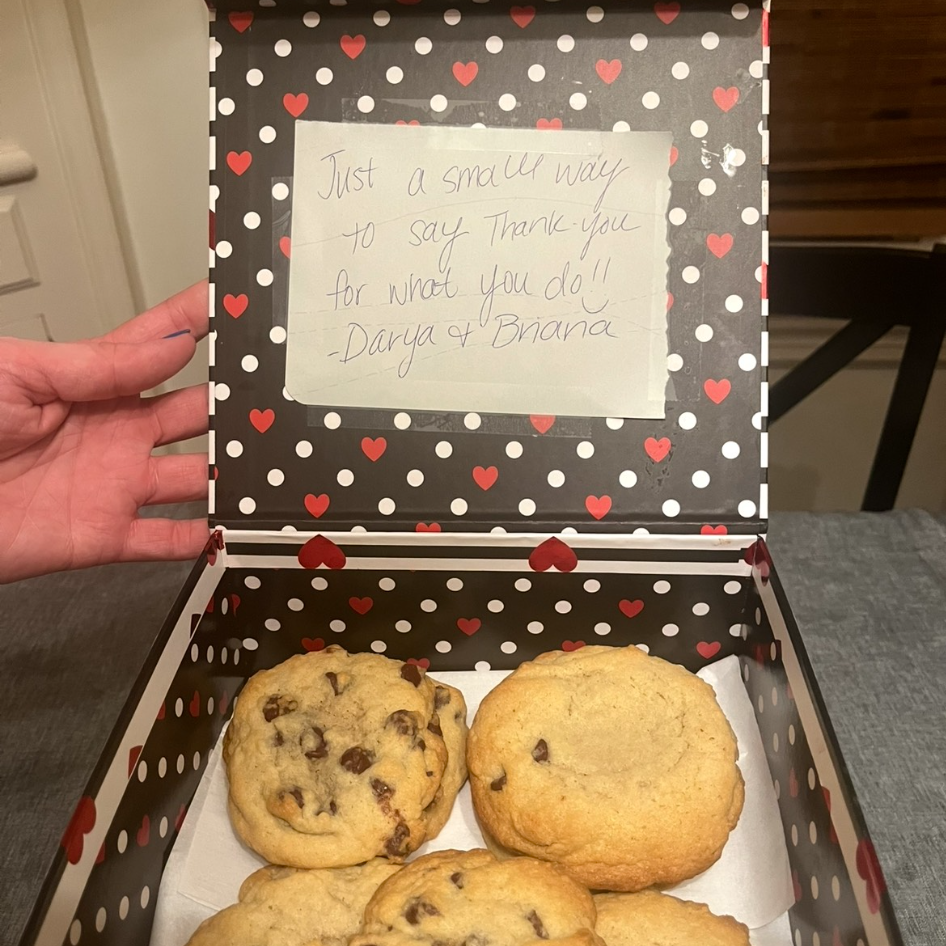 Just a small way
to say Thank-you
for what you do!!
-Darya & Briana